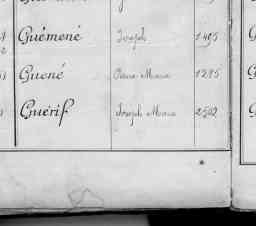 Guémené Joseph 1405
Guené Pierre Marie 1295
Guérif Joseph Marie 2502